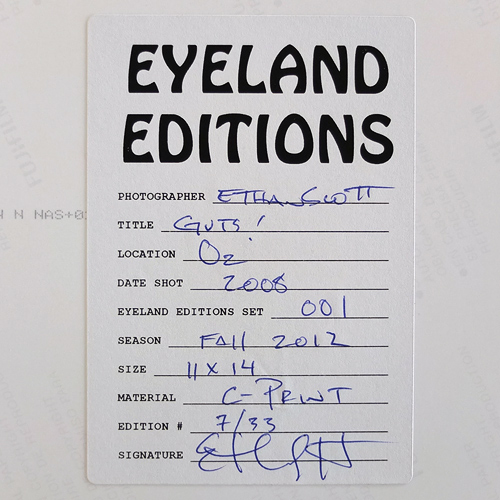 EYELAND
EDITIONS
PHOTOGRAPHER ETHAN SCOTT
TITLE GUTS!
LOCATION OZ
DATE SHOT 2008
EYELAND EDITIONS SET 001
SEASON FALL 2012
SIZE 11 X 14
MATERIAL C-PRINT
EDITION # 7/33
SIGNATURE
N NAS+0
FUJIFILM